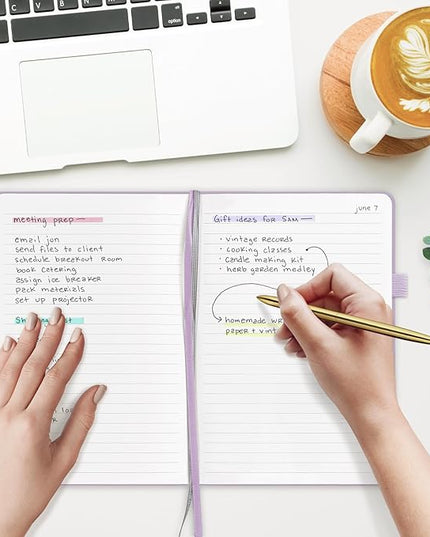 option
meeting prep —
email jon
send files to client
schedule breakout room
book catering
assign ice breaker
pack materials
set up projector
june 7
Gift ideas for Sam —
· vintage records
· cooking classes
· candle making kit
· herb garden medley
homemade
paper +